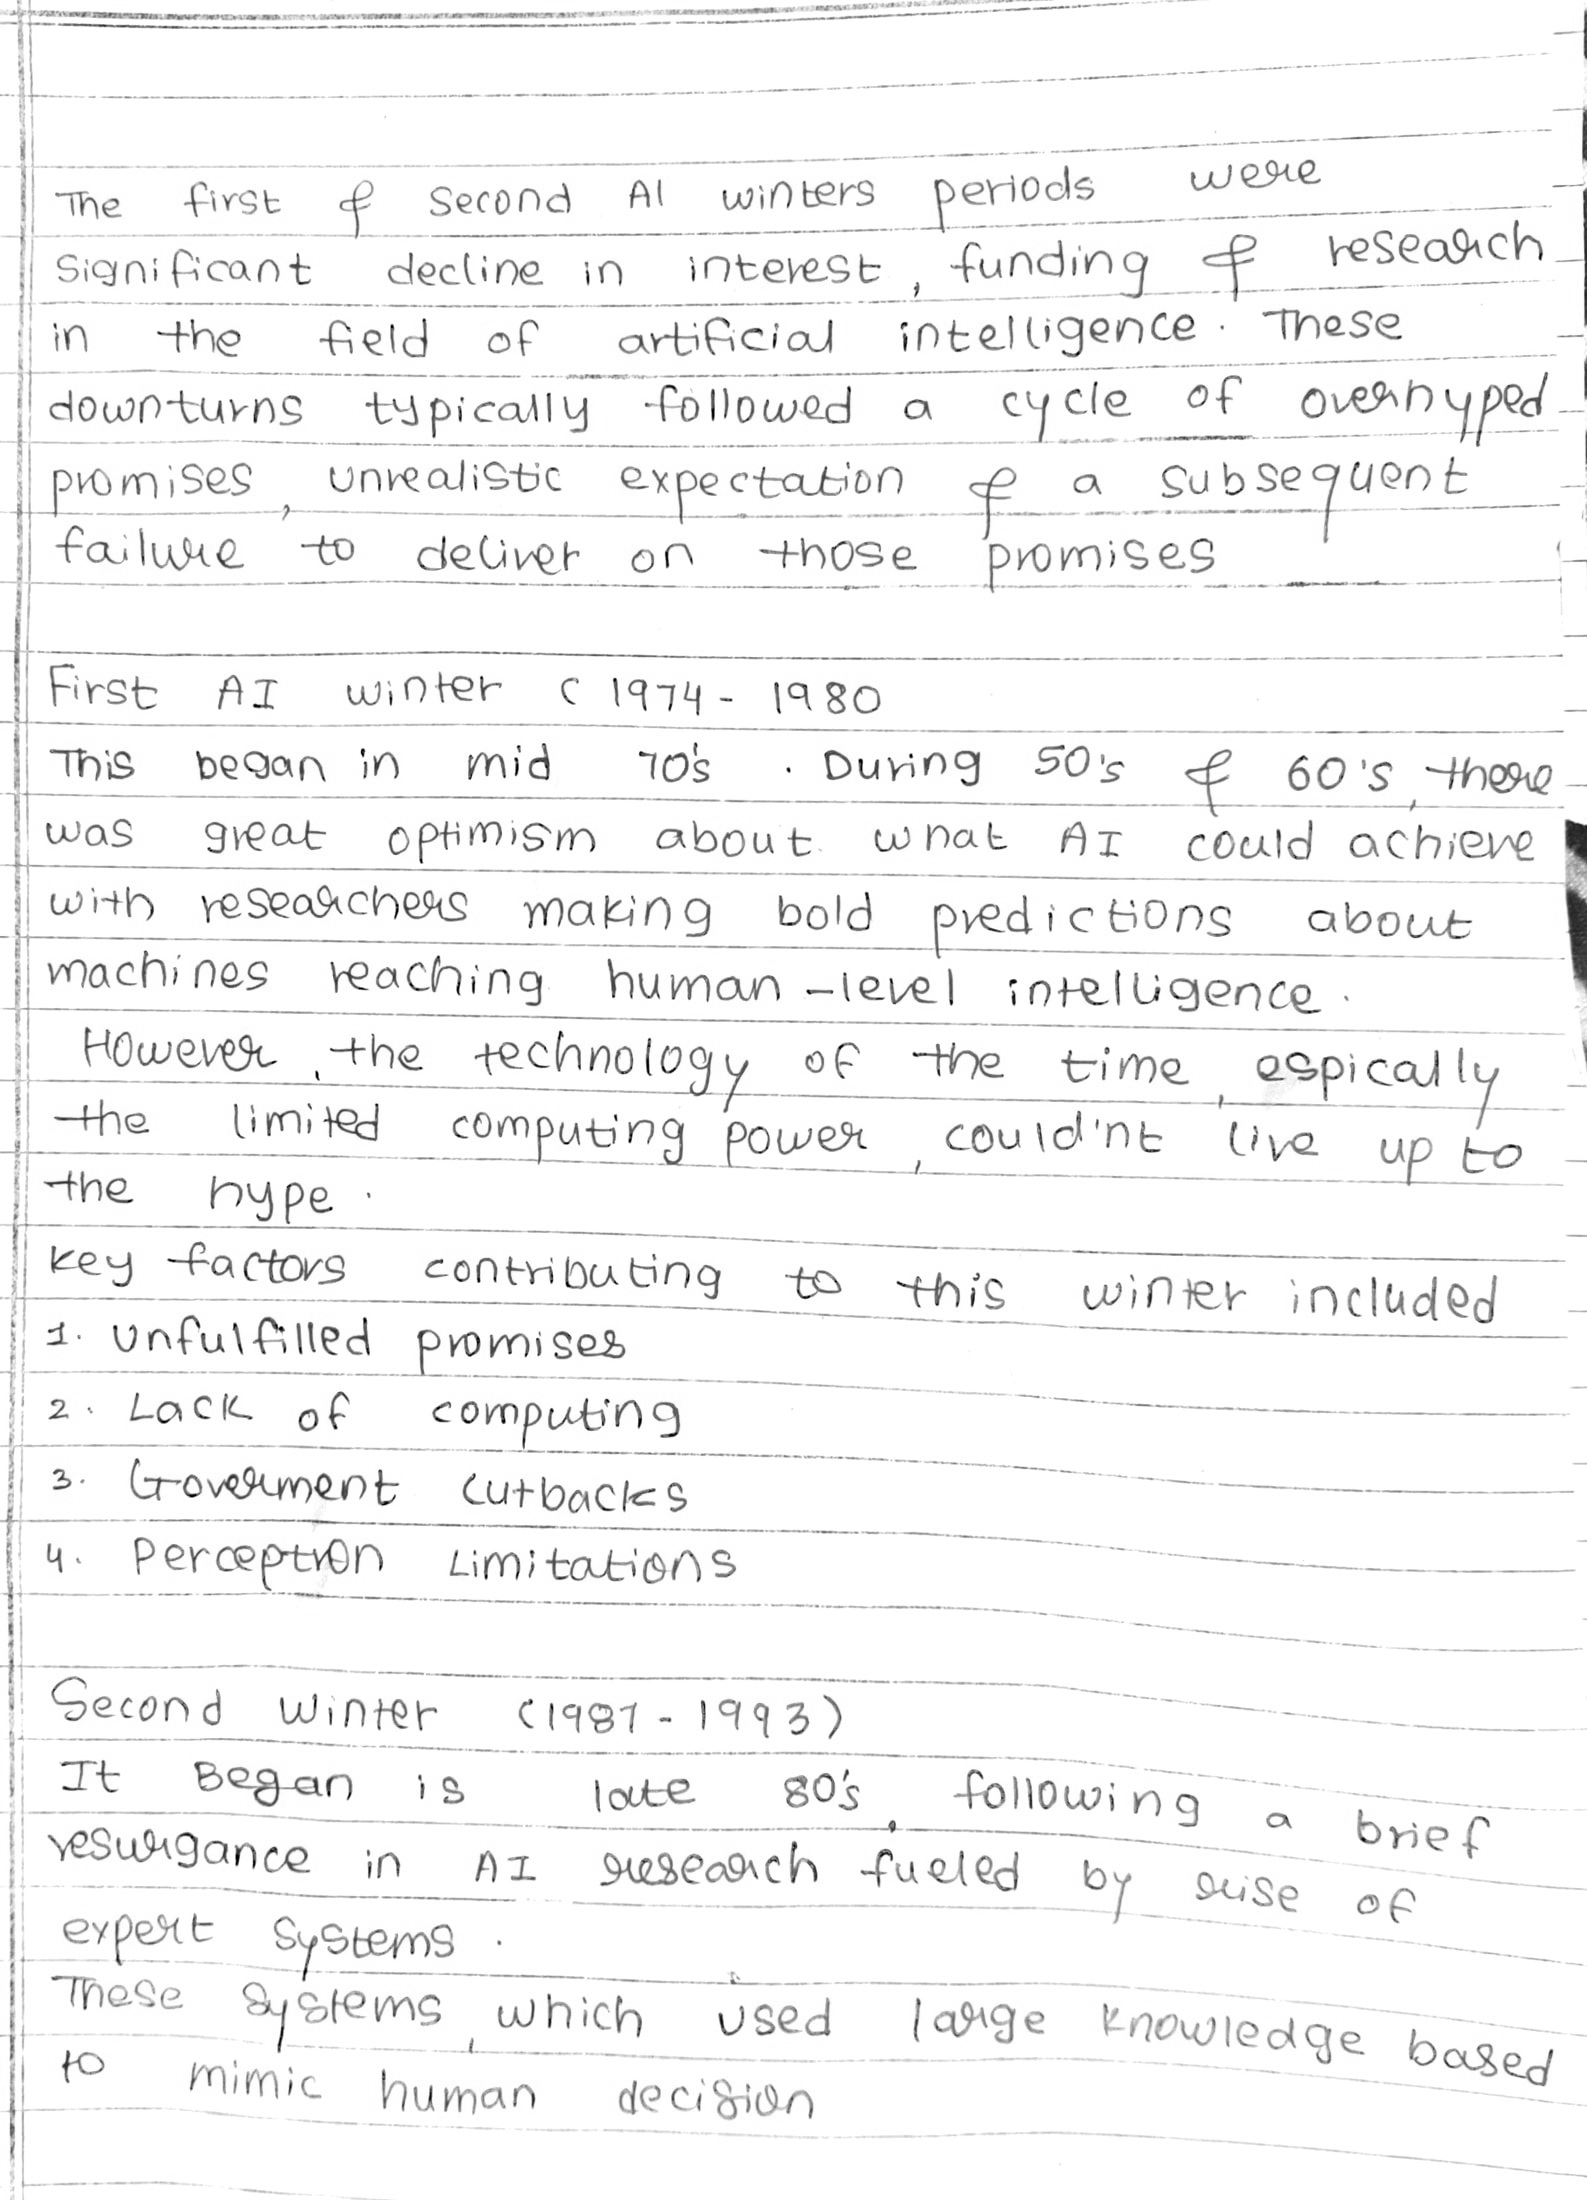 The first & second AI winters periods were
significant decline in interest, funding & research
in the field of artificial intelligence. These
downturns typically followed a cycle of overhyped
promises, unrealistic expectation & a subsequent
failure to deliver on those promises
First AI winter (1974 - 1980
This began in mid 70's. During 50's & 60's, there
was great optimism about what AI could achieve
with researchers making bold predictions about
machines reaching human-level intelligence.
However, the technology of the time, espically
the limited computing power, could'nt live up to
the hype.
key factors contributing to this winter included
1. Unfulfilled promises
2. Lack of computing
3. Goverment cutbacks
4. Perceptron Limitations
Second Winter (1987 - 1993)
It Began is late 80's, following a brief
resurgance in AI research fueled by rise of
expert systems.
These systems, which used large knowledge based
to mimic human decision